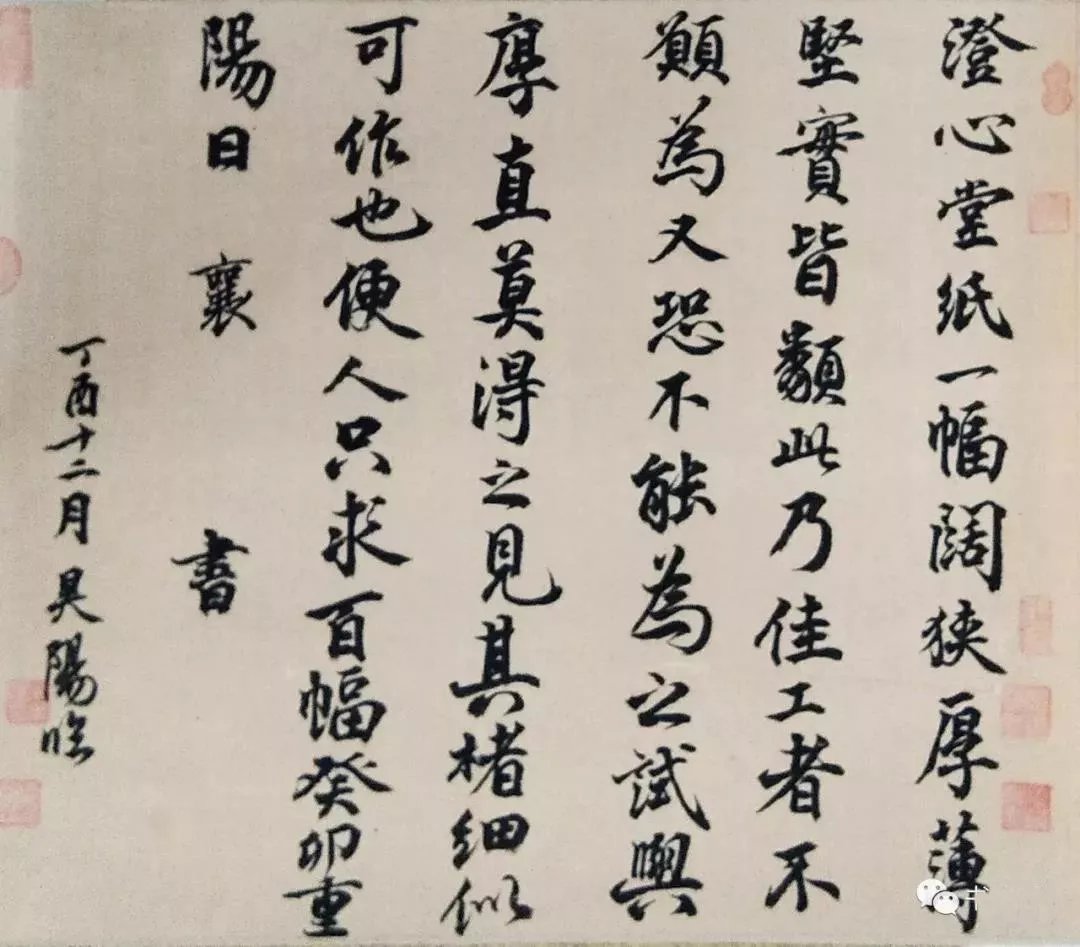 澄心堂紙一幅闊狹厚薄
堅實皆類此乃佳工者不
願為又恐不能為之試與
厚直莫得之見其楮細似
可作也便人只求百幅癸卯重
陽日 襄 書
丁酉十二月 吳陽臨